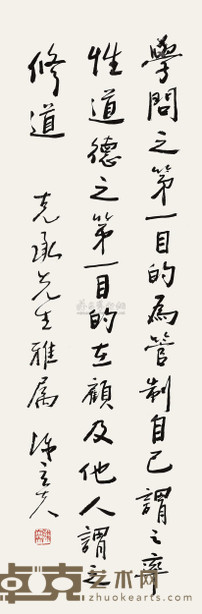 學問之第一目的為管制自己謂之率
性道德之第一目的在顧及他人謂之
修道
克承先生雅属 陳立夫
卓克艺术网